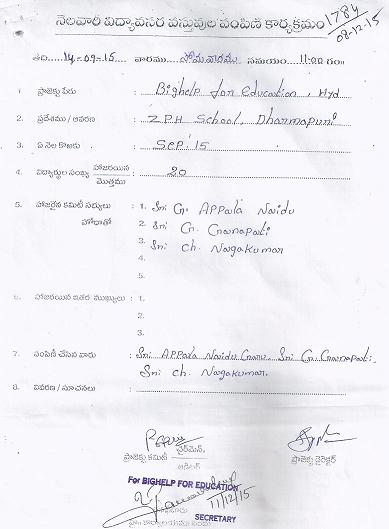 నెలవారి విద్యావసర వస్తువుల పంపిణి కార్యక్రమం
1784
08-12-15
తేది 14-09-15 వారము సోమవారము సమయం 11:00 గం॥
1. ప్రాజెక్టు పేరు : Bighelp for education, Hyd
2. ప్రదేశము / ఆవరణ : Z.P.H School, Dharmapuri
3. ఏ నెల కొరకు : Sep' 15
4. విద్యార్థుల సంఖ్య హాజరయిన / మొత్తము : 20
5. హాజరైన కమిటీ సభ్యులు : 1. Sri G. APPala Naidu
హోదాతో 2. Sri G. Ganapati
3. Sri Ch. Nagakumar
4.
5.
6. హాజరయిన ఇతర ముఖ్యులు : 1.
2.
3.
7. పంపిణి చేసిన వారు : Sri APPala Naidu Garu, Sri G. Ganapati,
Sri Ch. Nagakumar.
8. వివరణ / సూచనలు :
ప్రాజెక్టు కమిటీ చైర్మెన్
ప్రాజెక్టు డైరెక్టర్
For BIGHELP FOR EDUCATION
11/12/15
SECRETARY